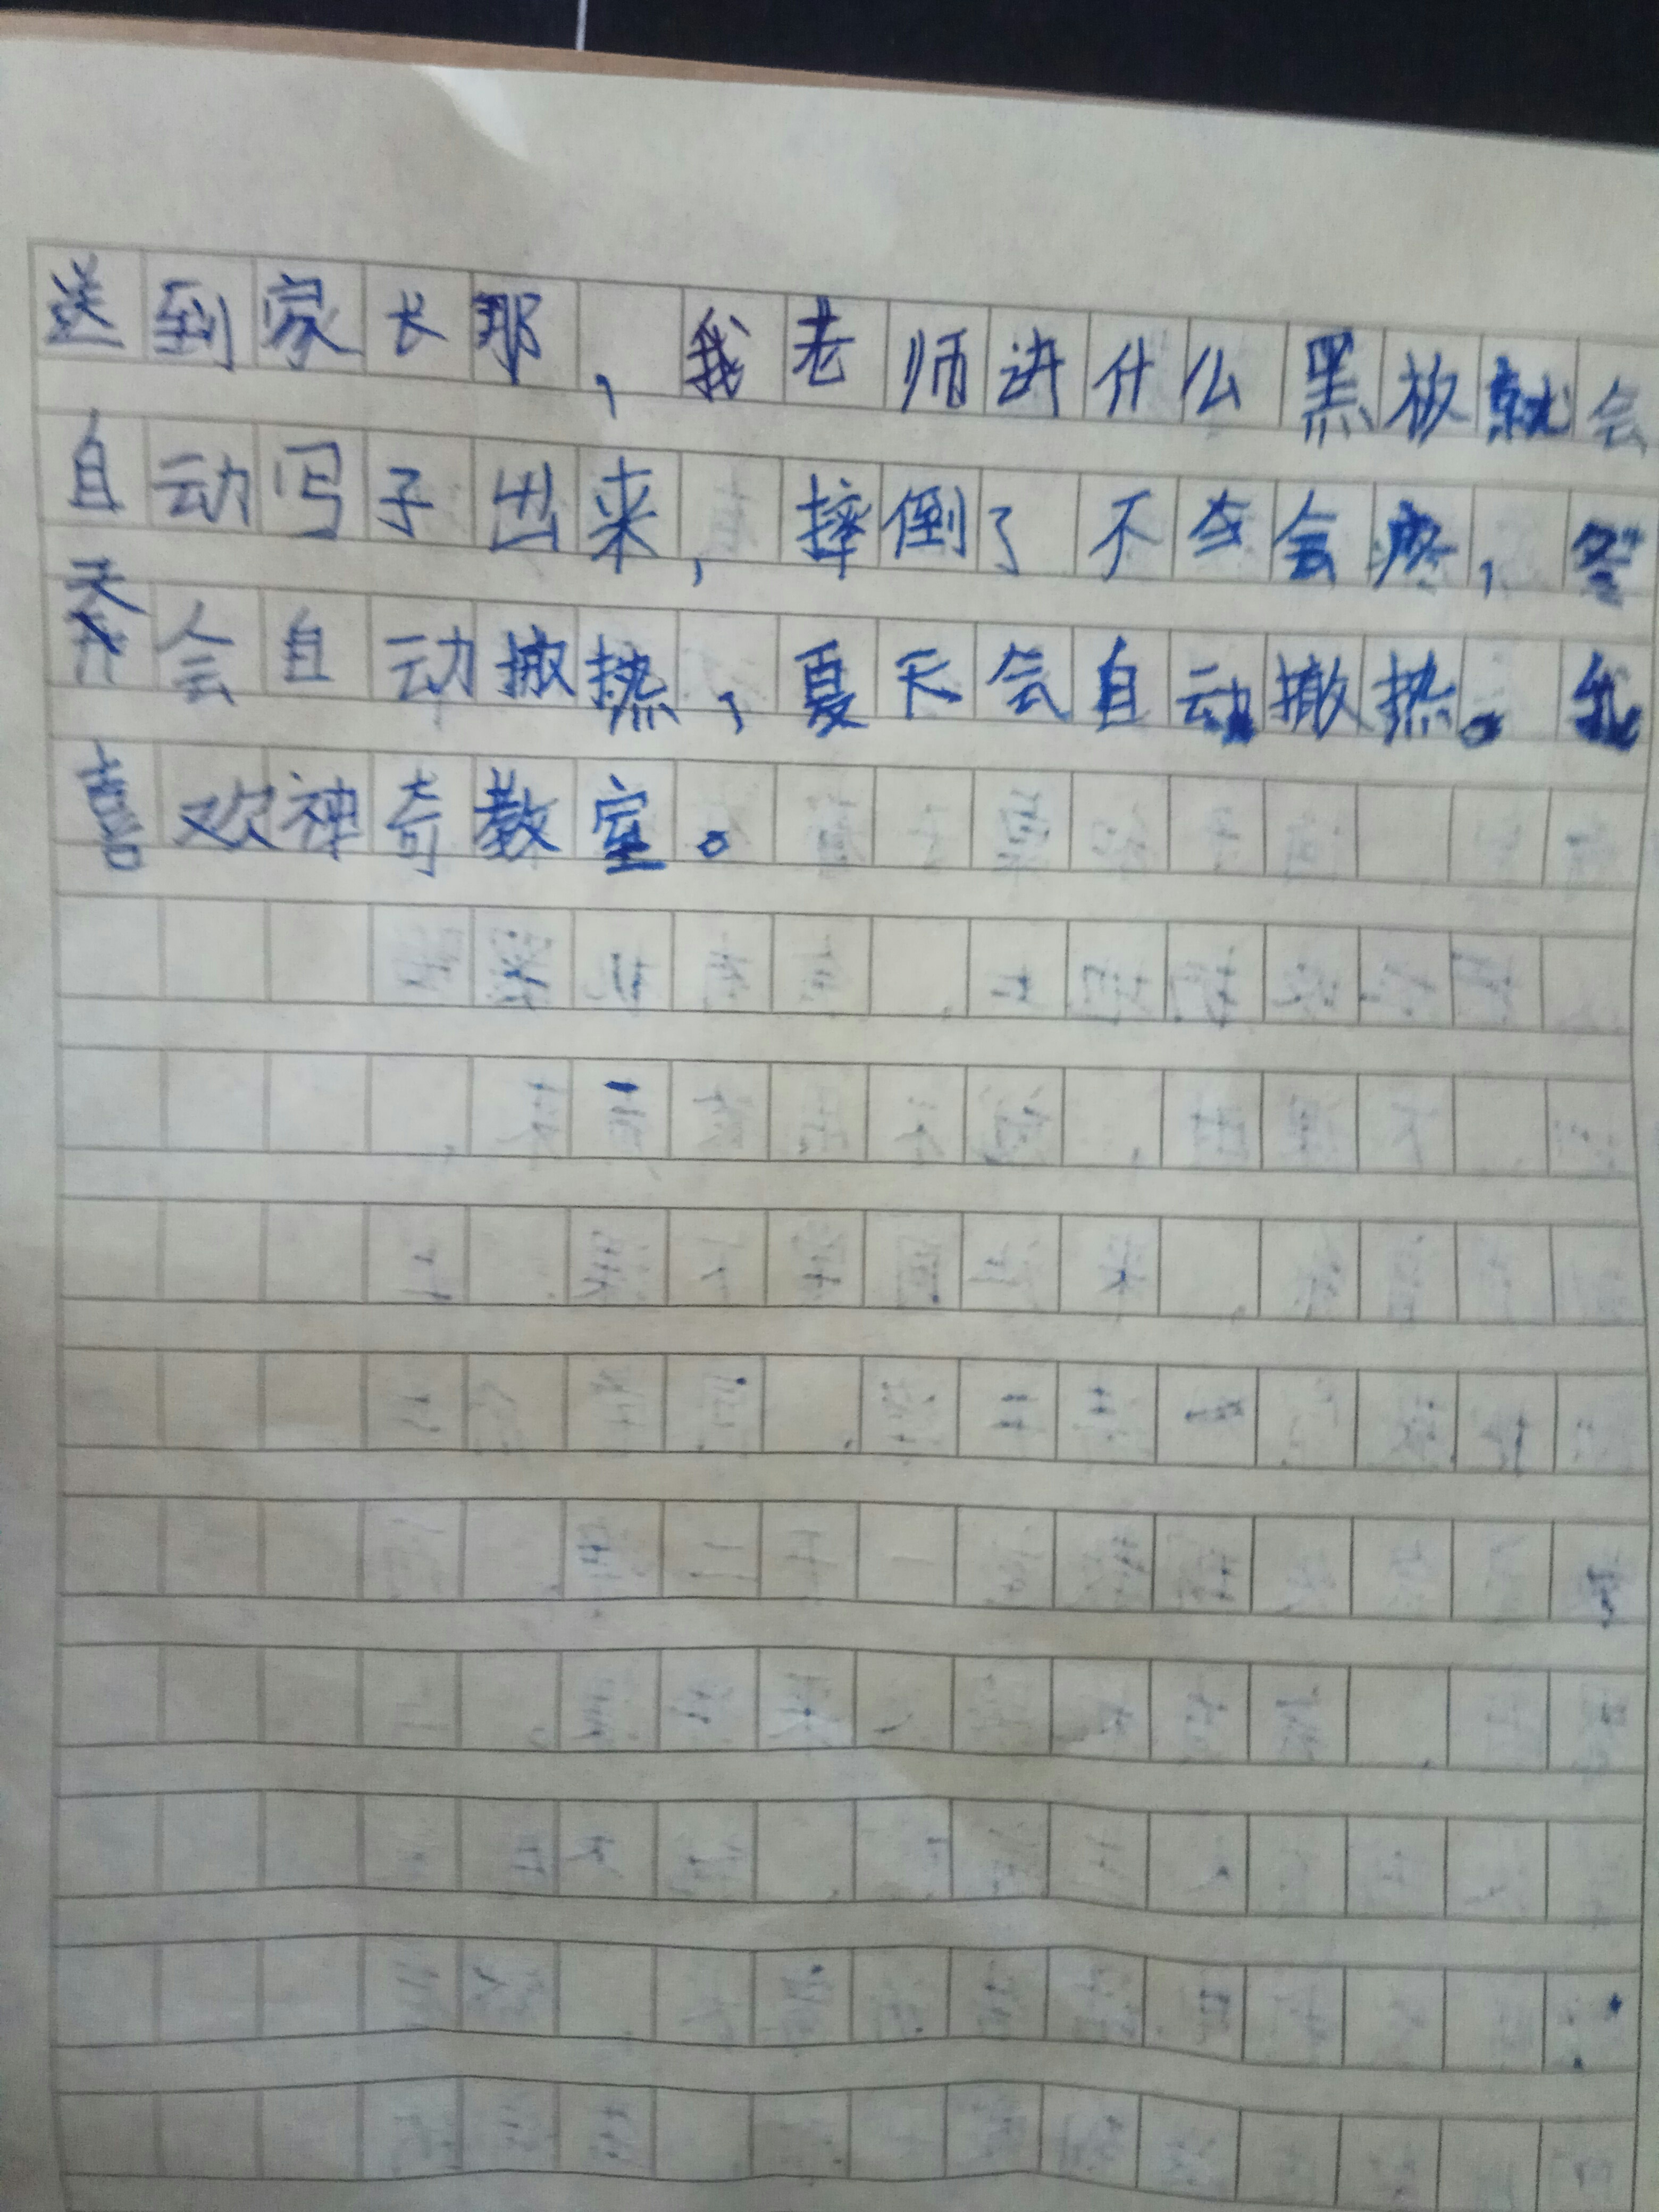 送到家长那，我老师讲什么黑板就会
自动写子出来，摔倒了不会疼，冬
天会自动撤热，夏天会自动撤热。我
喜欢神奇教室。